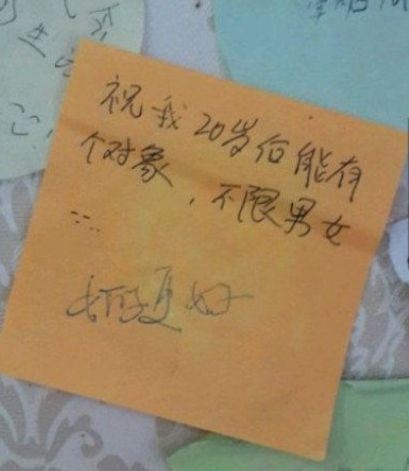 祝我20岁后能有
个对象，不限男女
.....
更好